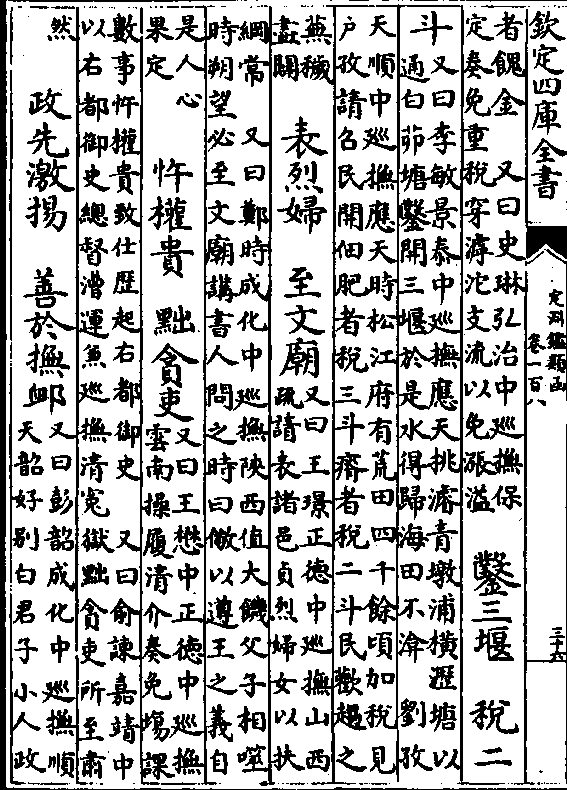 欽定四庫全書
定淵鑑類函
卷一百八
三十六
者餽金　又曰史琳弘治中巡撫保
定奏免重稅穿滹沱支流以免漲溢
鑿三堰　稅二
斗
又曰李敏景泰中巡撫應天挑濬青墩浦橫瀝塘以
通白茆塘鑿開三堰於是水得歸海田不渰　劉孜
天順中巡撫應天時松江府有荒田四千餘頃加稅見
户孜請召民開佃肥者稅三斗瘠者稅二斗民歡趨之
蕪穢
盡闢
表烈婦　至文廟
又曰王璟正德中巡撫山西
疏請表諸邑貞烈婦女以扶
綱常　又曰鄭時成化中巡撫陝西值大饑父子相噬
時朔望必至文廟講書人問之時曰儆以遵王之義自
是人心
果定
忤權貴　黜貪吏
又曰王懋中正德中巡撫
雲南操履清介奏免塲課
數事忤權貴致仕歷起右都御史　又曰俞諫嘉靖中
以右都御史總督漕運兼巡撫清寃獄黜貪吏所至肅
然
政先激揚　善於撫䘏
又曰彭韶成化中巡撫順
天韶好别白君子小人政